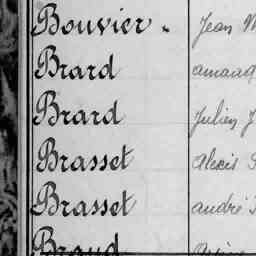 Bouvier Jean
Brard
Brard Julien J
Brasset Alexis
Brasset andré
Braud